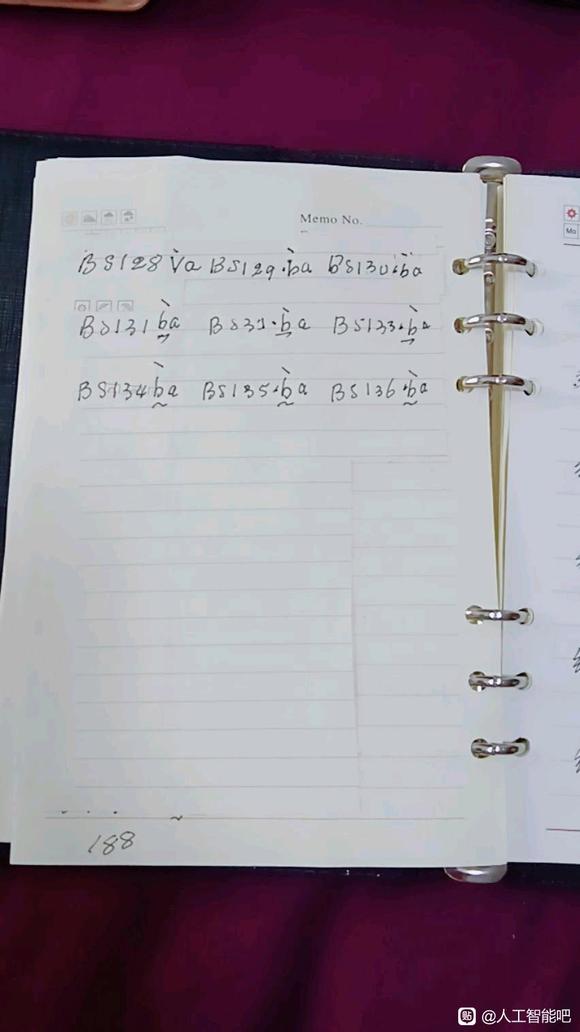 Memo No.
BS128 V̀a BS129·b̀a bS130·b̀a
BS131 b̀a BS31·b̀a BS133·b̀a
BS134 b̰̀a BS135·b̰̀a BS136·b̰̀a
188
Mo
@人工智能吧